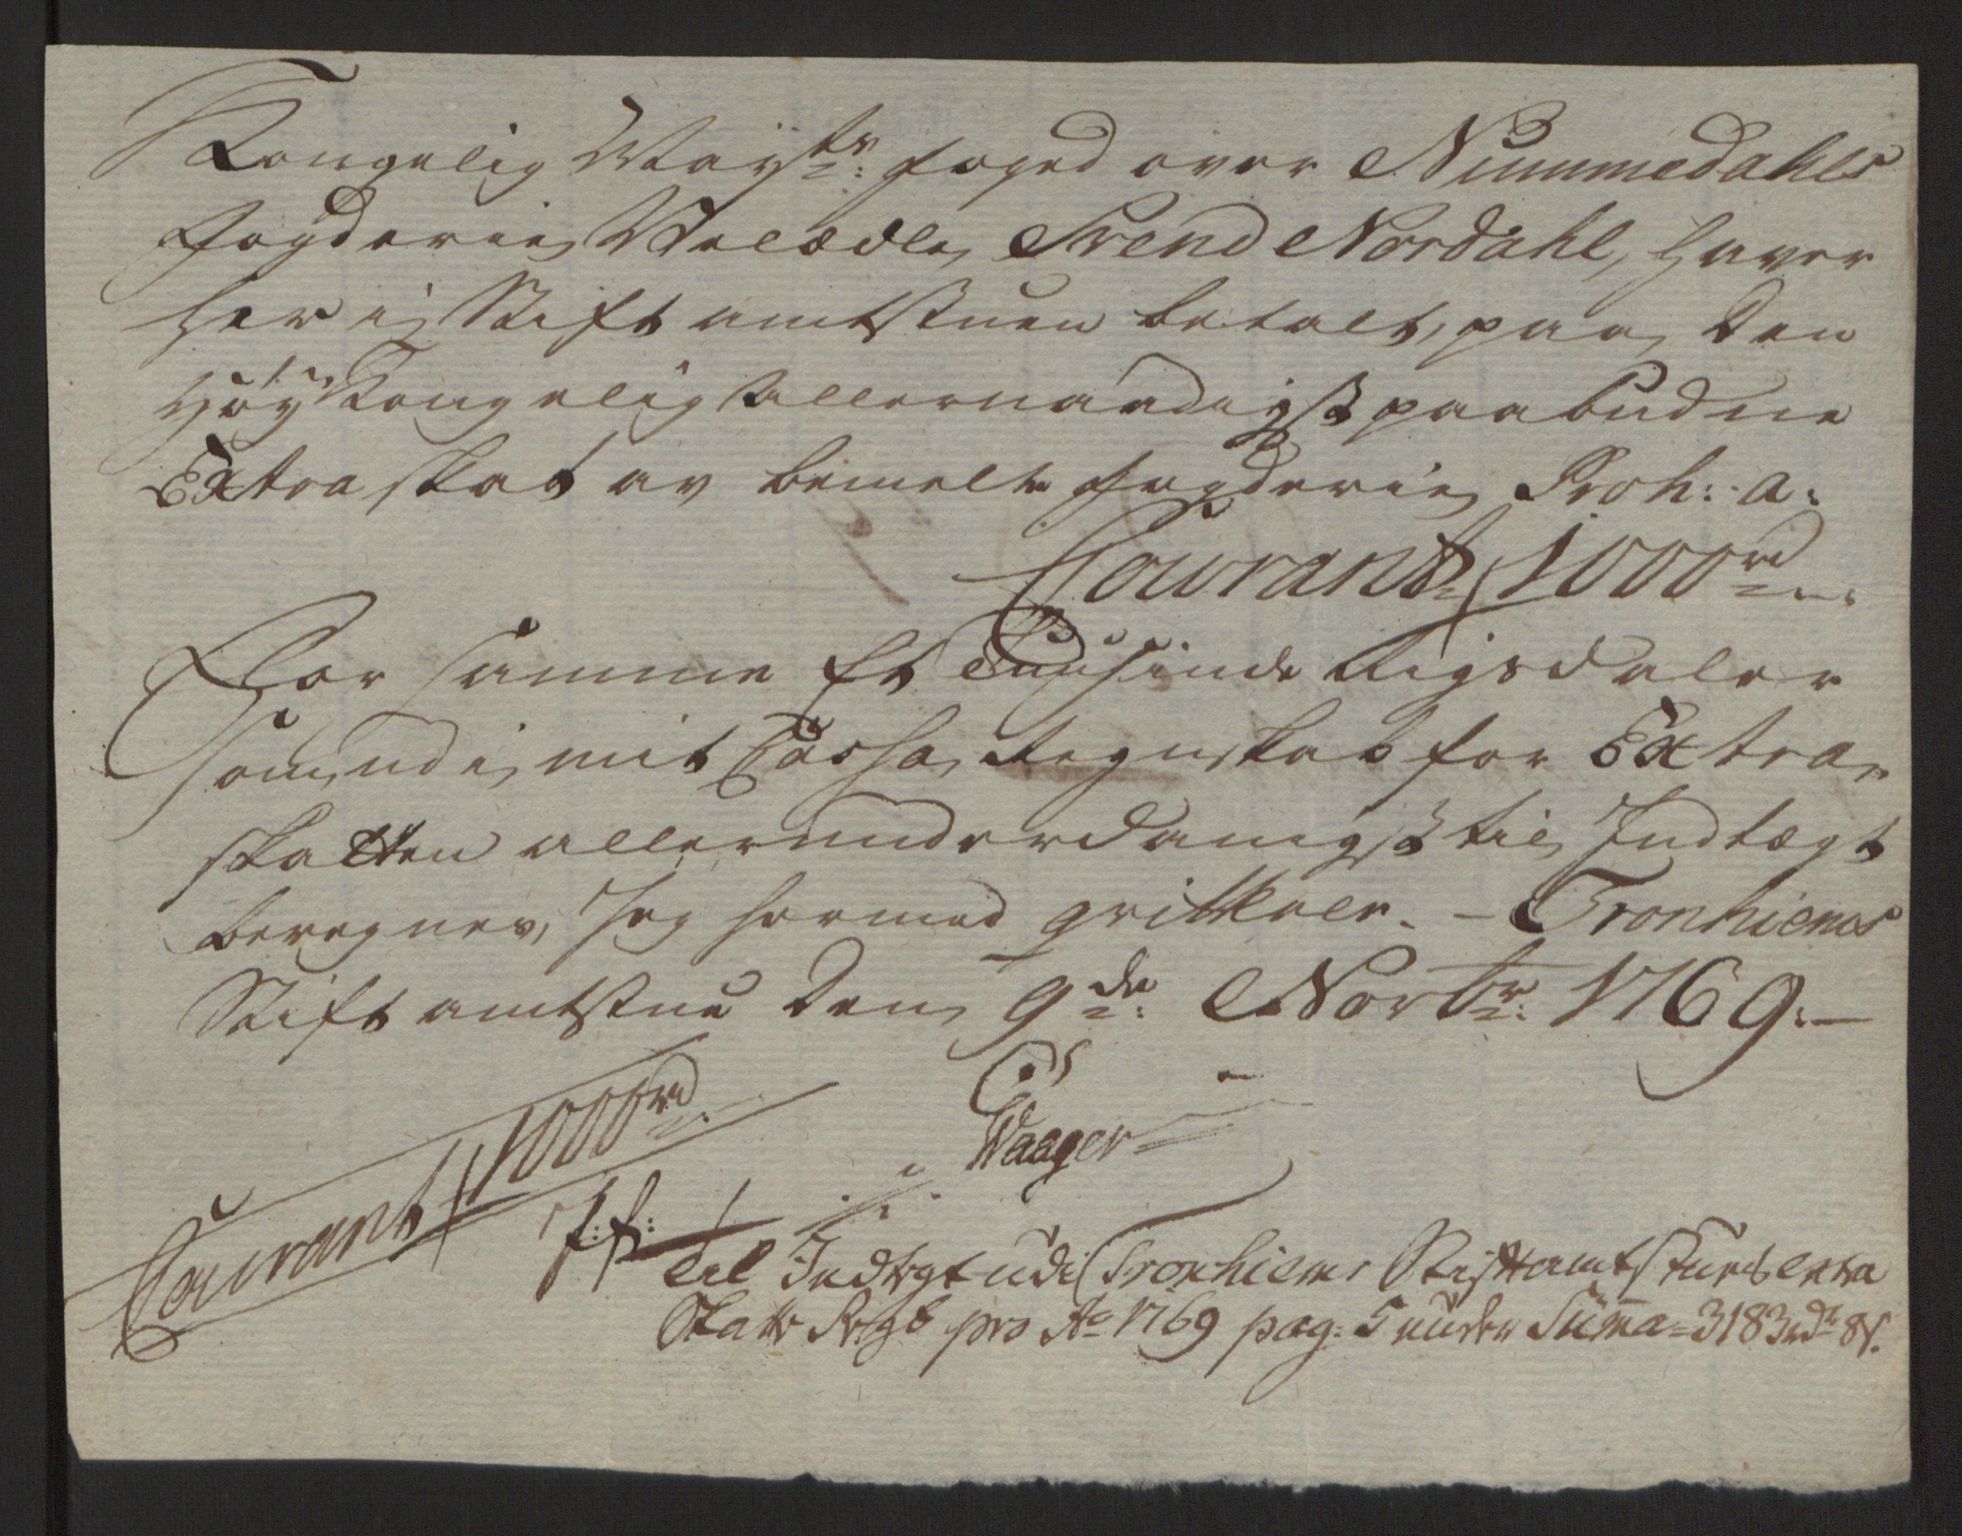 Kongelig Mayts: foged over Nummedahls
Fogderie Velædle Svend Nordahl, haver
her i Stiftamtstuen betalt, paa den
Høy Kongelig allernaadigst paabudne
Extra skat av bemelte Fogderie Proh: a:
Courant 1000 rd
For samme Et Tuusinde Rigsdaler
som udi mit Cassa Regnskab for Extra
skatten allerunderdanigst til Indtægt
beregnes, Jeg hermed qvitterer. - Tronhiems
Stiftamtstue den 9de: Novbr: 1769. -
Waager
Courant 1000 rd
til Indtegt udi Tronhiems Stiftamtstues extra
Skatte Rgb pro Ao 1769 pag: 5 under Summa = 3183 rdr 8 s.